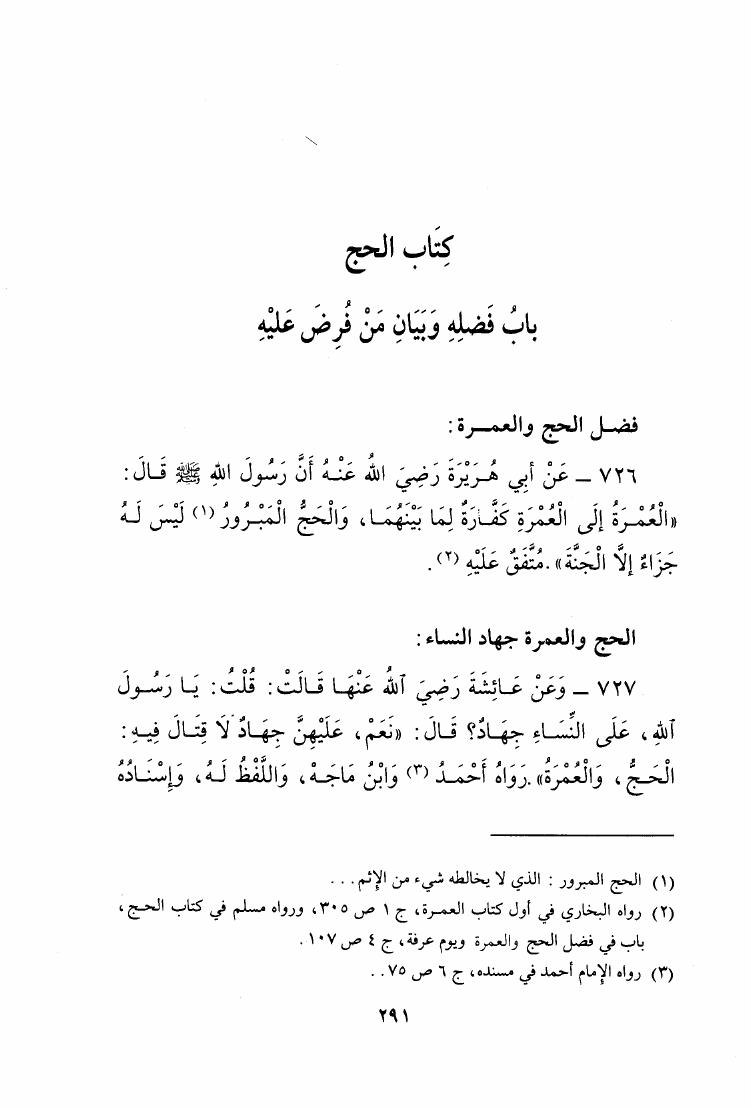 كِتَاب الحج
بابُ فَضلِهِ وَبَيَانِ مَنْ فُرِضَ عَلَيْهِ
فضـل الحج والعمـــرة :
٧٢٦ ــ عَنْ أبِي هُـرَيْرَةَ رَضِيَ اللهُ عَنْـهُ أَنَّ رَسُولَ اللهِ ﷺ قَـالَ :
«الْعُمْـرَةُ إلَى الْعُمْرَةِ كَفَّـارَةٌ لِمَا بَيْنَهُمَـا، وَالْحَجُّ الْمَبْـرُورُ (١) لَيْسَ لَـهُ
جَزَاءٌ إلاَّ الْجَنَّةَ». مُتَّفَقٌ عَلَيْهِ (٢) .
الحج والعمرة جهاد النساء :
٧٢٧ ــ وَعَنْ عَـائِشَةَ رَضِيَ ٱللهُ عَنْهَا قَـالَتْ : قُلْتُ : يَـا رَسُـولَ
ٱللهِ ، عَلَى النِّسَـاءِ جِهَـادٌ؟ قَالَ : «نَعَمْ، عَلَيْهِنَّ جِهَـادٌ لاَ قِتَـالَ فِيـهِ :
الْحَـجُّ ، وَالْعُمْرَةُ». رَوَاهُ أَحْمَـدُ (٣) وَابْنُ مَاجَـهْ ، وَاللَّفْظُ لَـهُ، وَإِسْنَـادُهُ
(١) الحج المبرور : الذي لا يخالطه شيء من الإثم . . .
(٢) رواه البخاري في أول كتاب العمـرة، ج ١ ص ٣٠٥، ورواه مسلم في كتاب الحـج ،
باب في فضل الحج والعمرة ويوم عرفة، ج ٤ ص ١٠٧ .
(٣) رواه الإمام أحمد في مسنده، ج ٦ ص ٧٥ . .
٢٩١